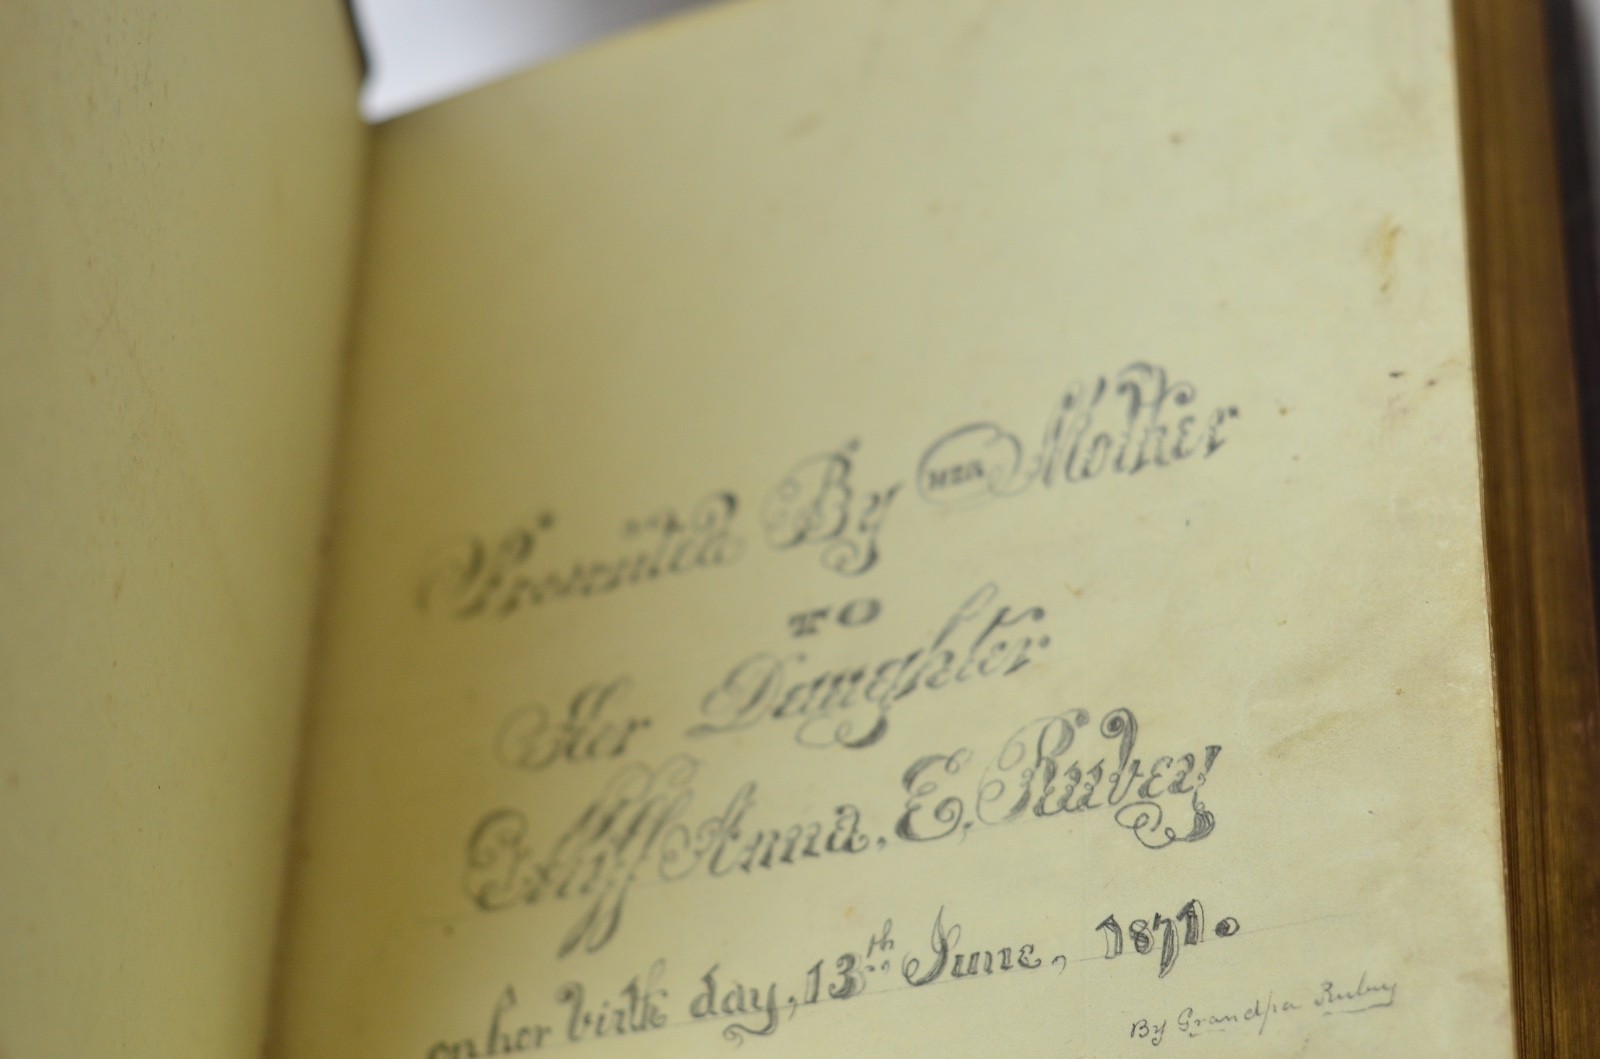 Presented By HER Mother
TO
Her Daughter
Miss Anna. E. Rubey
on her birth day, 13th June, 1871.
By Grandpa Rubey